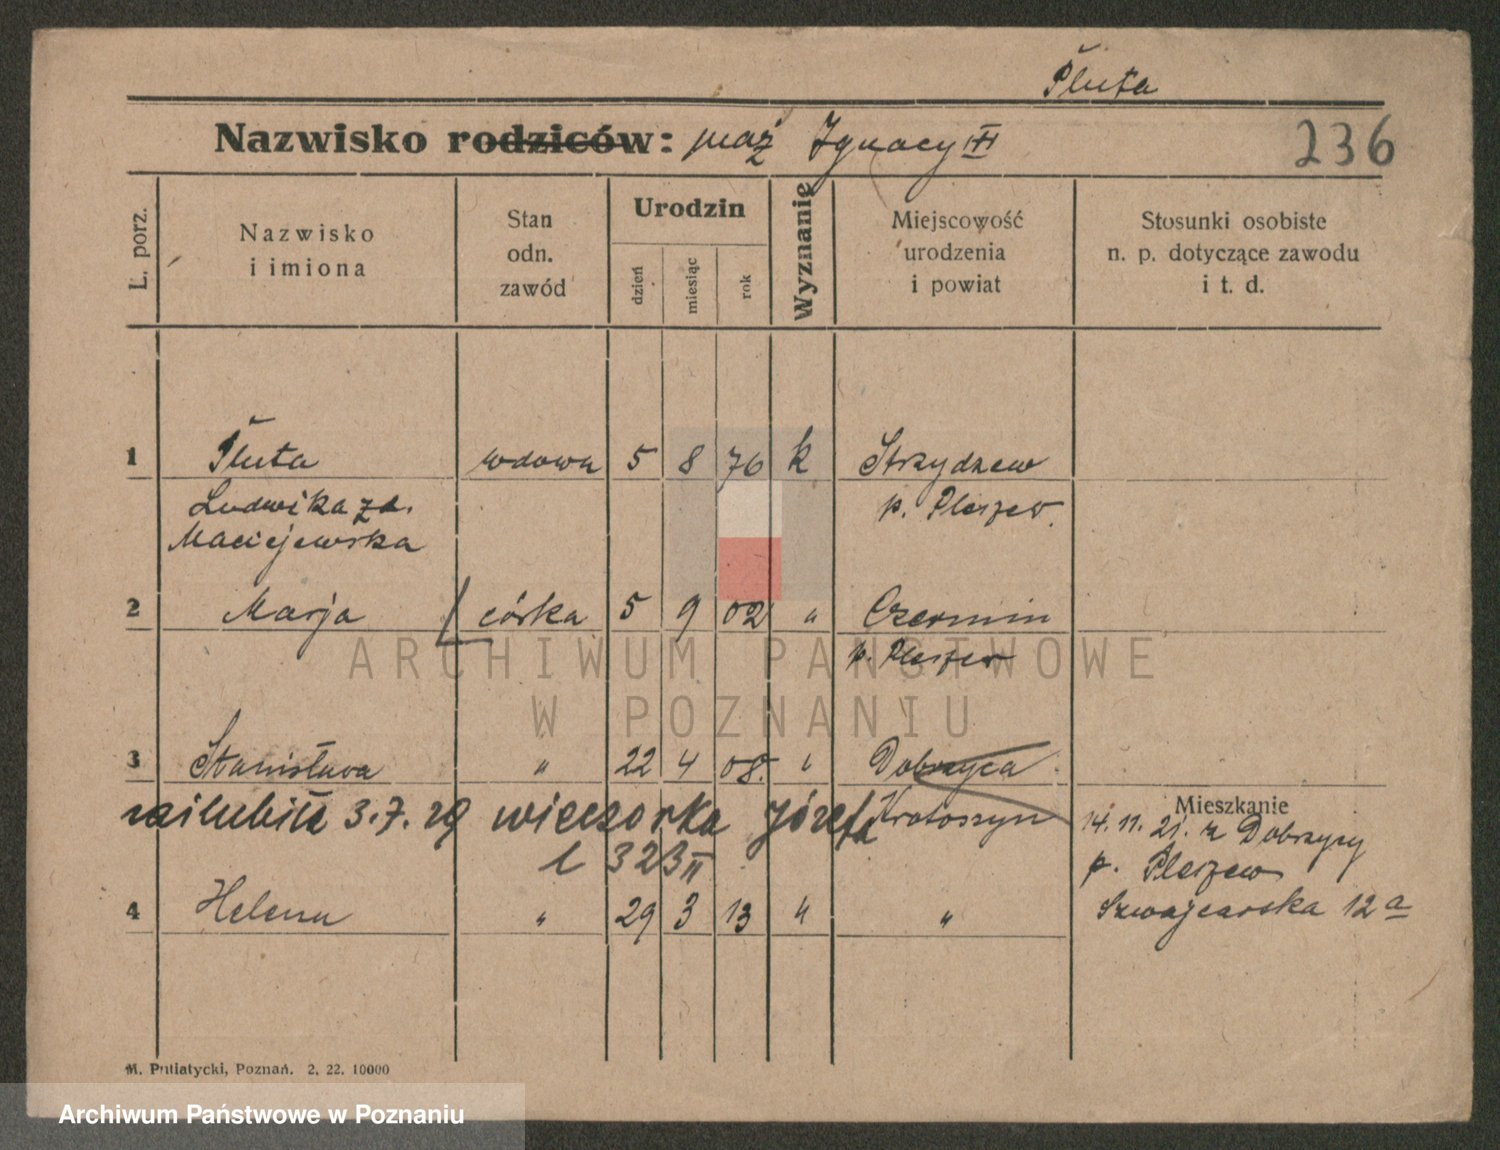 Pluta
Nazwisko rodziców: mąż Ignacy
236
L. porz.
Nazwisko
i imiona
Stan
odn.
zawód
Urodzin
dzień
miesiąc
rok
Wyznanie
Miejscowość
urodzenia
i powiat
Stosunki osobiste
n. p. dotyczące zawodu
i t. d.
1 Pluta wdowa 5 8 76 k Strzydzew
Ludwika zd. p. Pleszew.
Maciejewska
2 Marja córka 5 9 02 " Czermin
p. Pleszew
ARCHIWUM PAŃSTWOWE
W POZNANIU
3 Stanisława " 22 4 08. " Dobrzyca
zaślubiła 3.7.29 wieczorka Józefa Krotoszyn
l 323 II
Mieszkanie
14. 11. 21. z Dobrzycy
p. Pleszew
Szwajcarska 12a
4 Helena " 29 3 13 " "
M. Putiatycki, Poznań. 2. 22. 10000
Archiwum Państwowe w Poznaniu